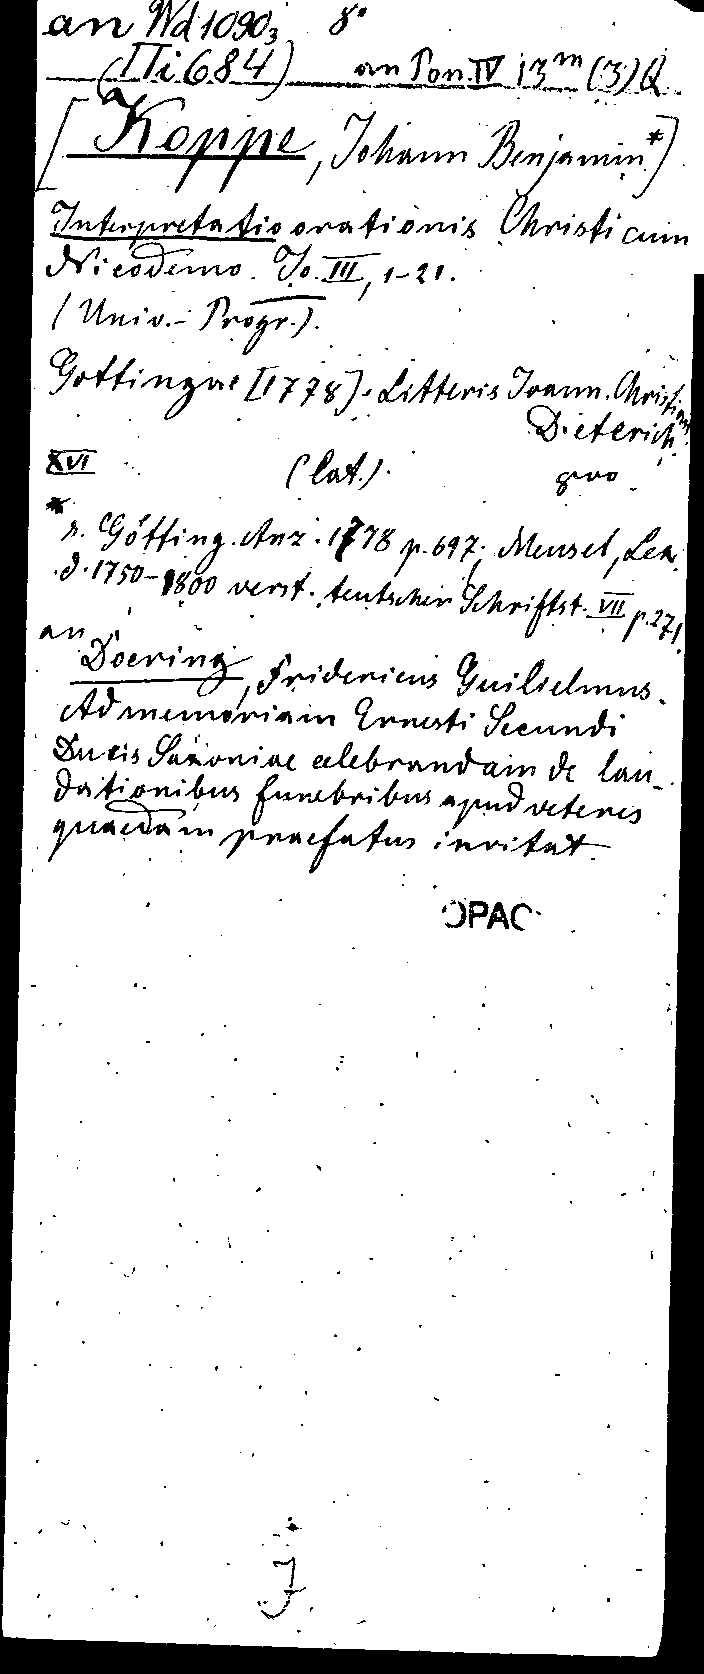 an Wd 1090₃ 8°
(ITi 684) an Pon IV 13ᵐ (3) Q.
[Koppe, Johann Benjamin*]
Interpretatio orationis Christi cum
Nicodemo Jo. III, 1-21.
(Univ.-Progr.).
Gottingae [1778]. Litteris Joann. Christian
Dieterich.
XVI (lat.). 8vo
* s. Götting. Anz. 1778 p. 697; Meusel, Lex.
d. 1750-1800 verst. teutschen Schriftst. VII p. 271.
an
Doering, Fridericus Guilielmus.
Ad memoriam Ernesti Secundi
Ducis Saxoniae celebrandam de lau-
dationibus funebribus apud veteres
quaedam praefatus invitat
OPAC
J